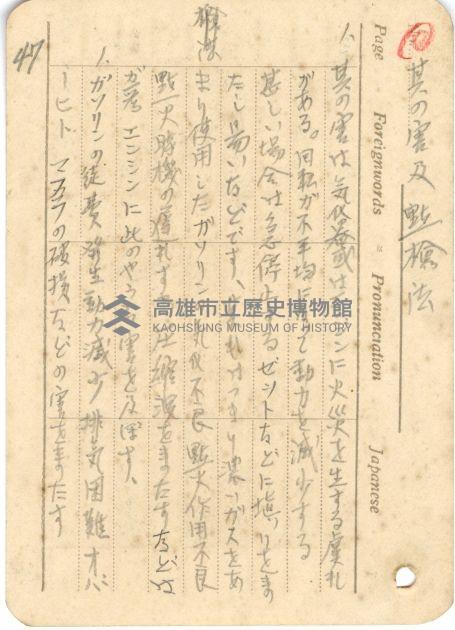 其の害及點檢法
Page Foreignwords Pronunciation Japanese
1、其の害は気化器或はエンジンに火災を生する虞れ
がある。回転が不平均になって動力を減少する
甚しい場合は急停止する ゼットなどに塞りをま
たし易いなどです、それはつまり濃いガスをあ
まり使用したガソリン 気化不良 點火作用不良
點火時機の遅れすぎ 圧縮洩をまたすなどは
が為 エンジンに此のやうな害を及ぼす、
檢法
1、ガソリンの徒費 發生動力減少 排気困難 オバ
ーヒト マフラの破損などの害をまたす
47
高雄市立歷史博物館
KAOHSIUNG MUSEUM OF HISTORY